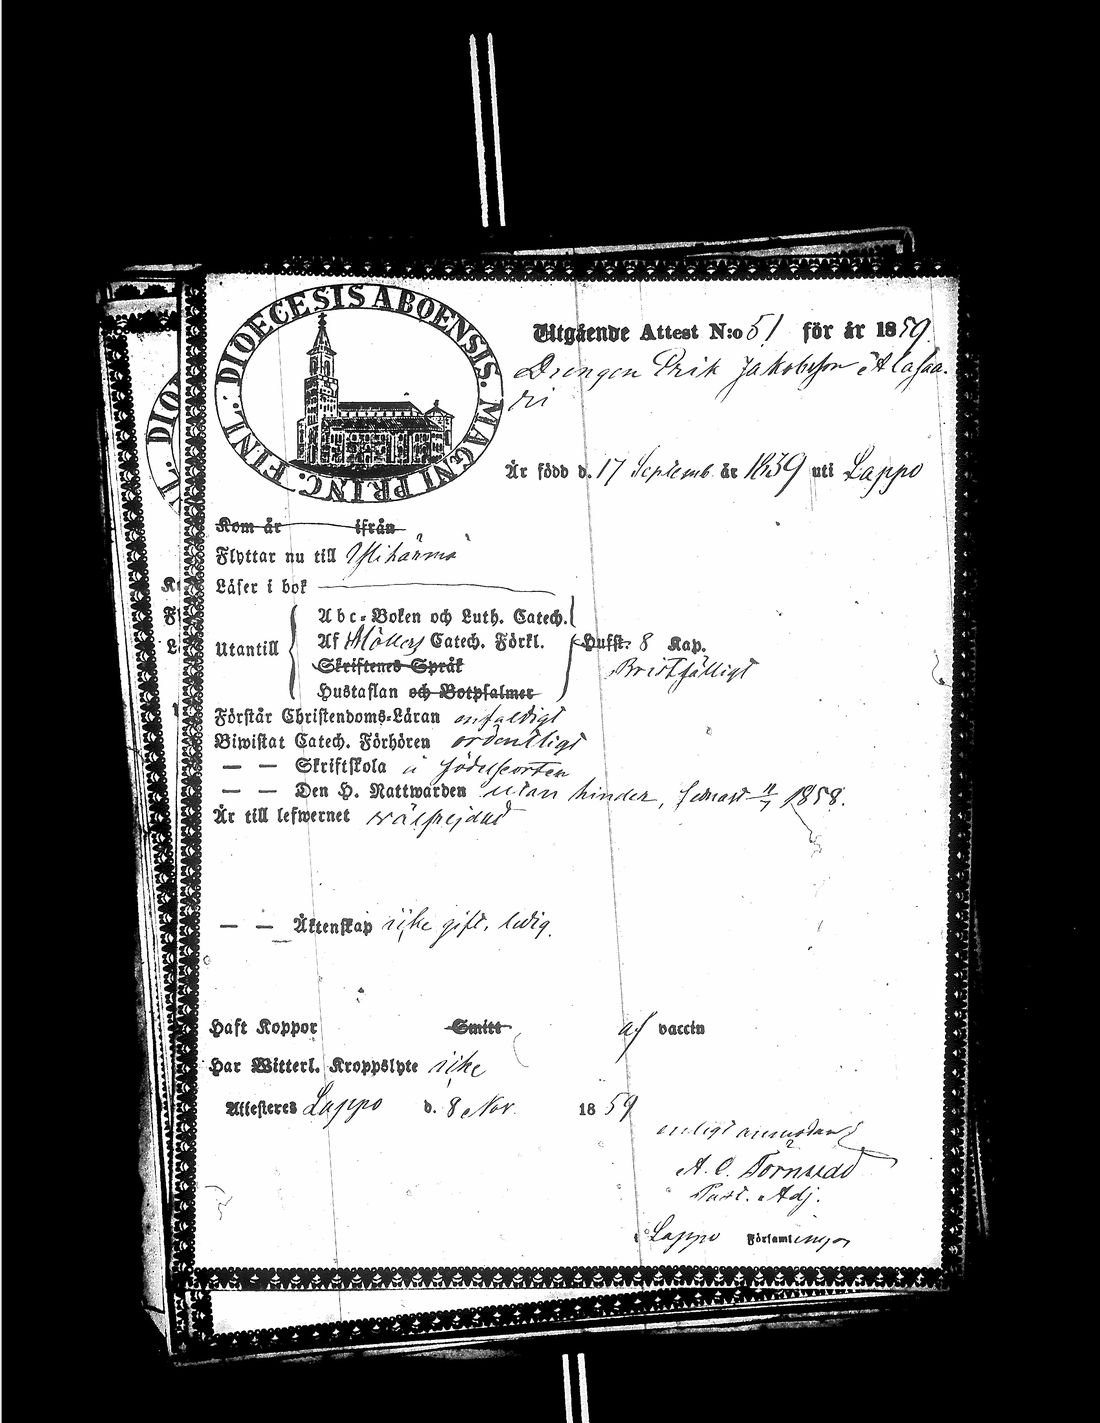 DIOECESIS ABOENSIS. MAGNI PRINC. FINL.
Utgående Attest N:o 51 för år 1859.
Drengen Erik Jakobsson Alasaa-
ri
Är född d. 17 Septemb år 1839 uti Lappo
Kom år ifrån
Flyttar nu till Ylihärmä
Läser i bok
Utantill
Abc-Boken och Luth. Catech.
Af Möllers Catech. Förkl.
Skriftenes Språk
Hustaflan och Botpsalmer
Husft. 8 Kap.
Bristfälligt
Förstår Christendoms-Läran enfaldigt
Biwistat Catech. Förhören ordentligt
— — Skriftskola i födelseorten
— — Den H. Nattwarden utan hinder, 1858.
Är till lefwernet wälfrejdad
— — Äktenskap icke gift, ledig.
Haft Koppor Smitt af vaccin
Har Witterl. Kroppslyte icke
Attesteres Lappo d. 8 Nov. 1859
enligt
A. C. Törnudd
Past. Adj.
i Lappo Församlingen
DIO